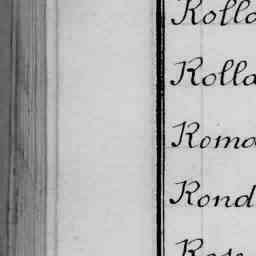 Rolla
Rolla
Roma
Rond
Rose